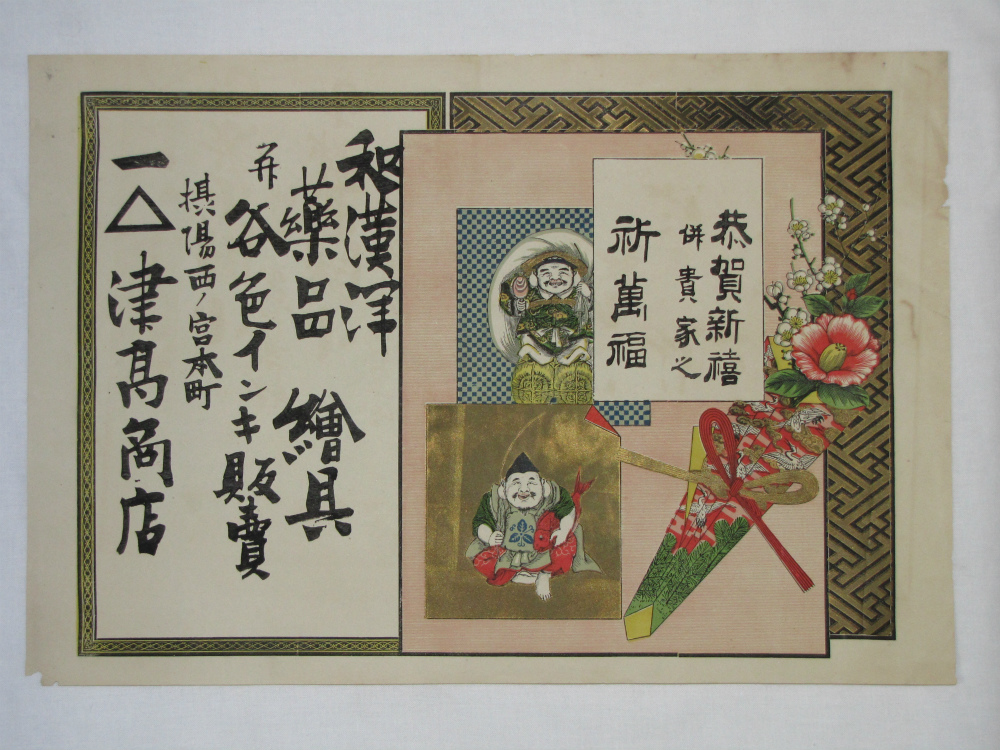 恭賀新禧
併貴家之
祈萬福
和漢洋
藥品 繪具
并
各色インキ販賣
摂陽西ノ宮本町
一△津髙商店